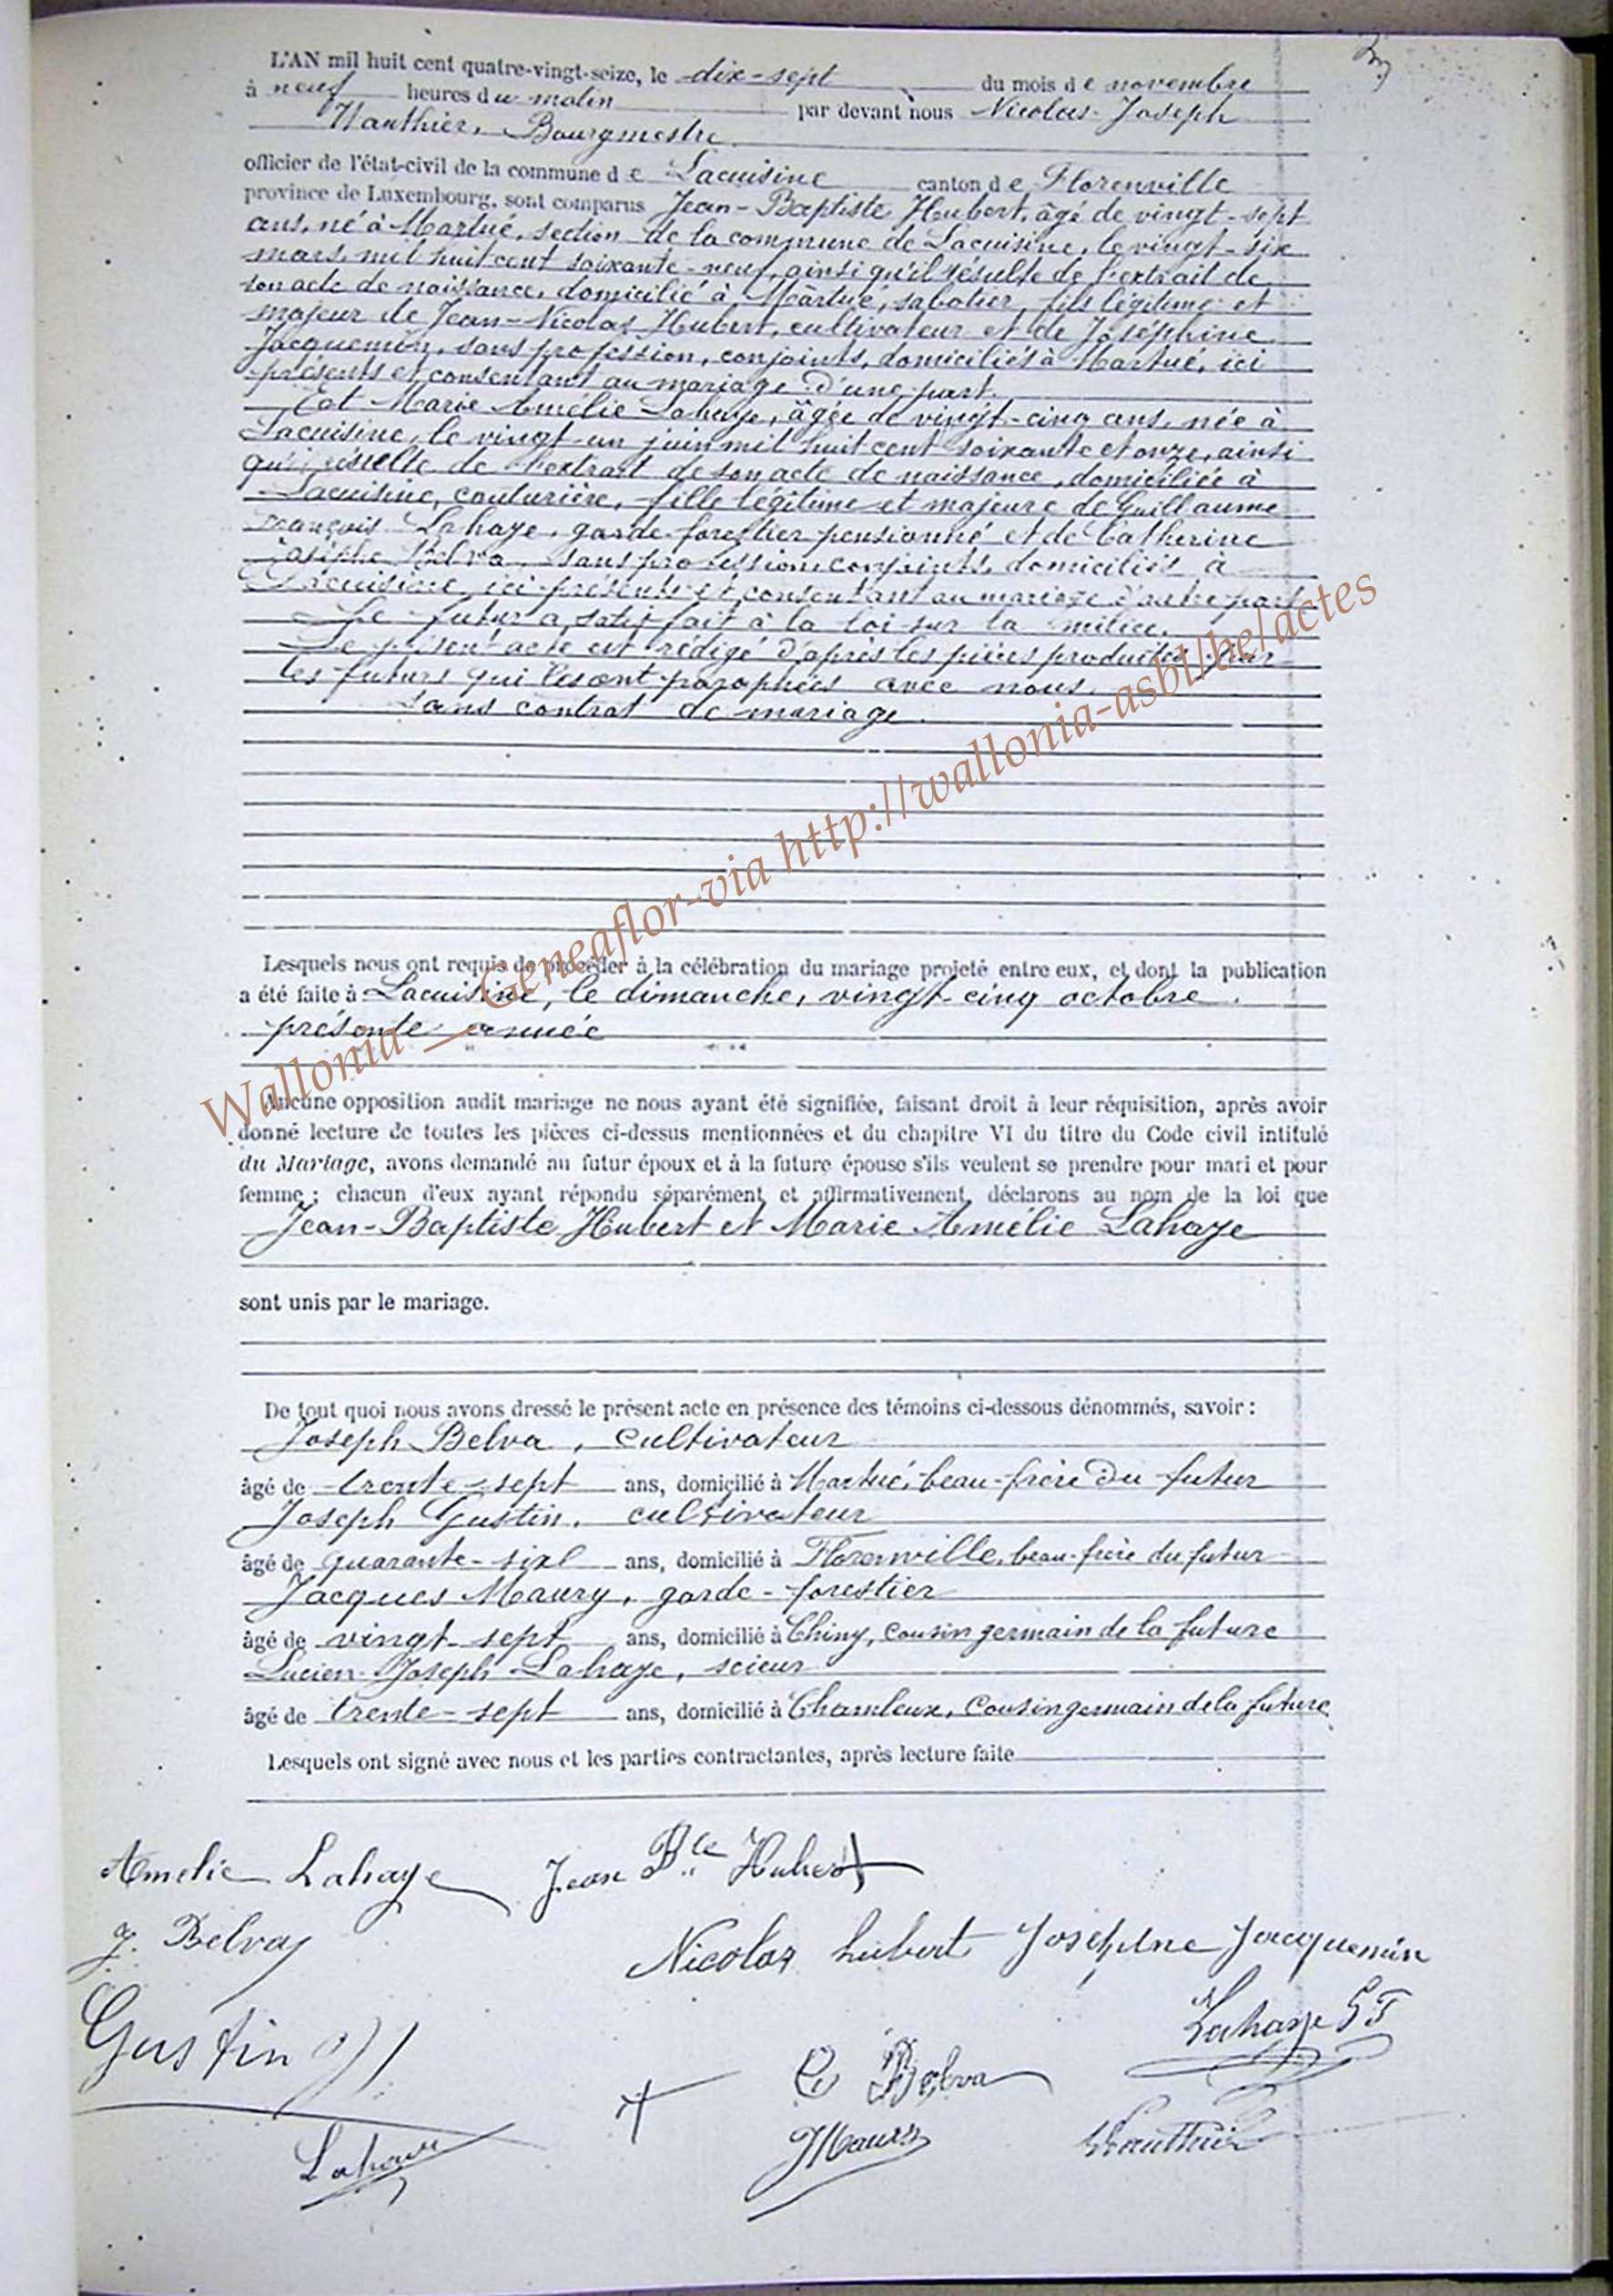 L'AN mil huit cent quatre-vingt-seize, le dix-sept du mois de novembre
à neuf heures du matin par devant nous Nicolas-Joseph
Wauthier, Bourgmestre
officier de l'état-civil de la commune de Lacuisine canton de Florenville
province de Luxembourg, sont comparus Jean-Baptiste Hubert, âgé de vingt-sept
ans, né à Martué, section de la commune de Lacuisine, le vingt-six
mars mil huit cent soixante-neuf, ainsi qu'il résulte de l'extrait de
son acte de naissance, domicilié à Martué, sabotier, fils légitime et
majeur de Jean-Nicolas Hubert, cultivateur et de Joséphine
Jacquemin, sans profession, conjoints, domiciliés à Martué, ici
présents et consentant au mariage d'une part.
Et Marie Amélie Lahaye, âgée de vingt-cinq ans, née à
Lacuisine, le vingt-un juin mil huit cent soixante et onze, ainsi
qu'il résulte de l'extrait de son acte de naissance, domiciliée à
Lacuisine, couturière, fille légitime et majeure de Guillaume
François Lahaye, garde-forestier pensionné et de Catherine
Josèphe Belva, sans profession, conjoints, domiciliés à
Lacuisine, ici présents et consentant au mariage d'autre part
Le futur a satisfait à la loi sur la milice.
Le présent acte est rédigé d'après les pièces produites par
les futurs qui les ont paraphées avec nous.
Sans contrat de mariage.
Lesquels nous ont requis de procéder à la célébration du mariage projeté entre eux, et dont la publication
a été faite à Lacuisine, le dimanche, vingt-cinq octobre
présente année
Aucune opposition audit mariage ne nous ayant été signifiée, faisant droit à leur réquisition, après avoir
donné lecture de toutes les pièces ci-dessus mentionnées et du chapitre VI du titre du Code civil intitulé
du Mariage, avons demandé au futur époux et à la future épouse s'ils veulent se prendre pour mari et pour
femme ; chacun d'eux ayant répondu séparément et affirmativement, déclarons au nom de la loi que
Jean-Baptiste Hubert et Marie Amélie Lahaye
sont unis par le mariage.
De tout quoi nous avons dressé le présent acte en présence des témoins ci-dessous dénommés, savoir :
Joseph Belva, cultivateur
âgé de trente-sept ans, domicilié à Martué, beau-frère du futur
Joseph Gustin, cultivateur
âgé de quarante-six ans, domicilié à Florenville, beau-frère du futur
Jacques Maury, garde-forestier
âgé de vingt-sept ans, domicilié à Chiny, cousin germain de la future
Lucien-Joseph Lahaye, scieur
âgé de trente-sept ans, domicilié à Chameleux, cousin germain de la future
Lesquels ont signé avec nous et les parties contractantes, après lecture faite
Amelie Lahaye Jean Bte Hubert
J. Belva
Nicolas hubert Joséphine Jacquemin
Lahaye GF
Gustin J
C Belva
Lahaye JMaury Wauthier
Wallonia__Geneaflor-via http://wallonia-asbl/be/actes